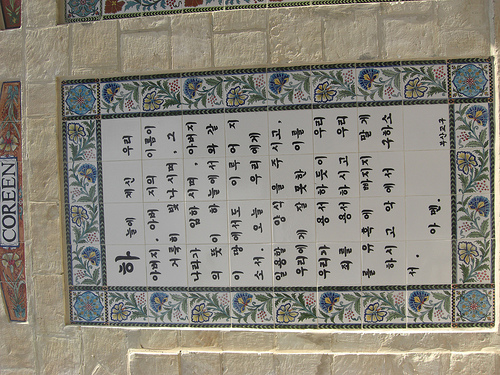 COREEN
하늘에 계신 우리
아버지. 아버지의 이름이
거룩히 빛나시며, 그
나라가 임하시며, 아버지
의 뜻이 하늘에서와 같
이 땅에서도 이루어 지
소서. 오늘 우리에게
일용할 양식을 주시고,
우리에게 잘못한 이를
우리가 용서하듯이 우리
죄를 용서하시고 우리
를 유혹에 빠지지 말게
하시고 악에서 구하소
서. 아멘.
부산교구